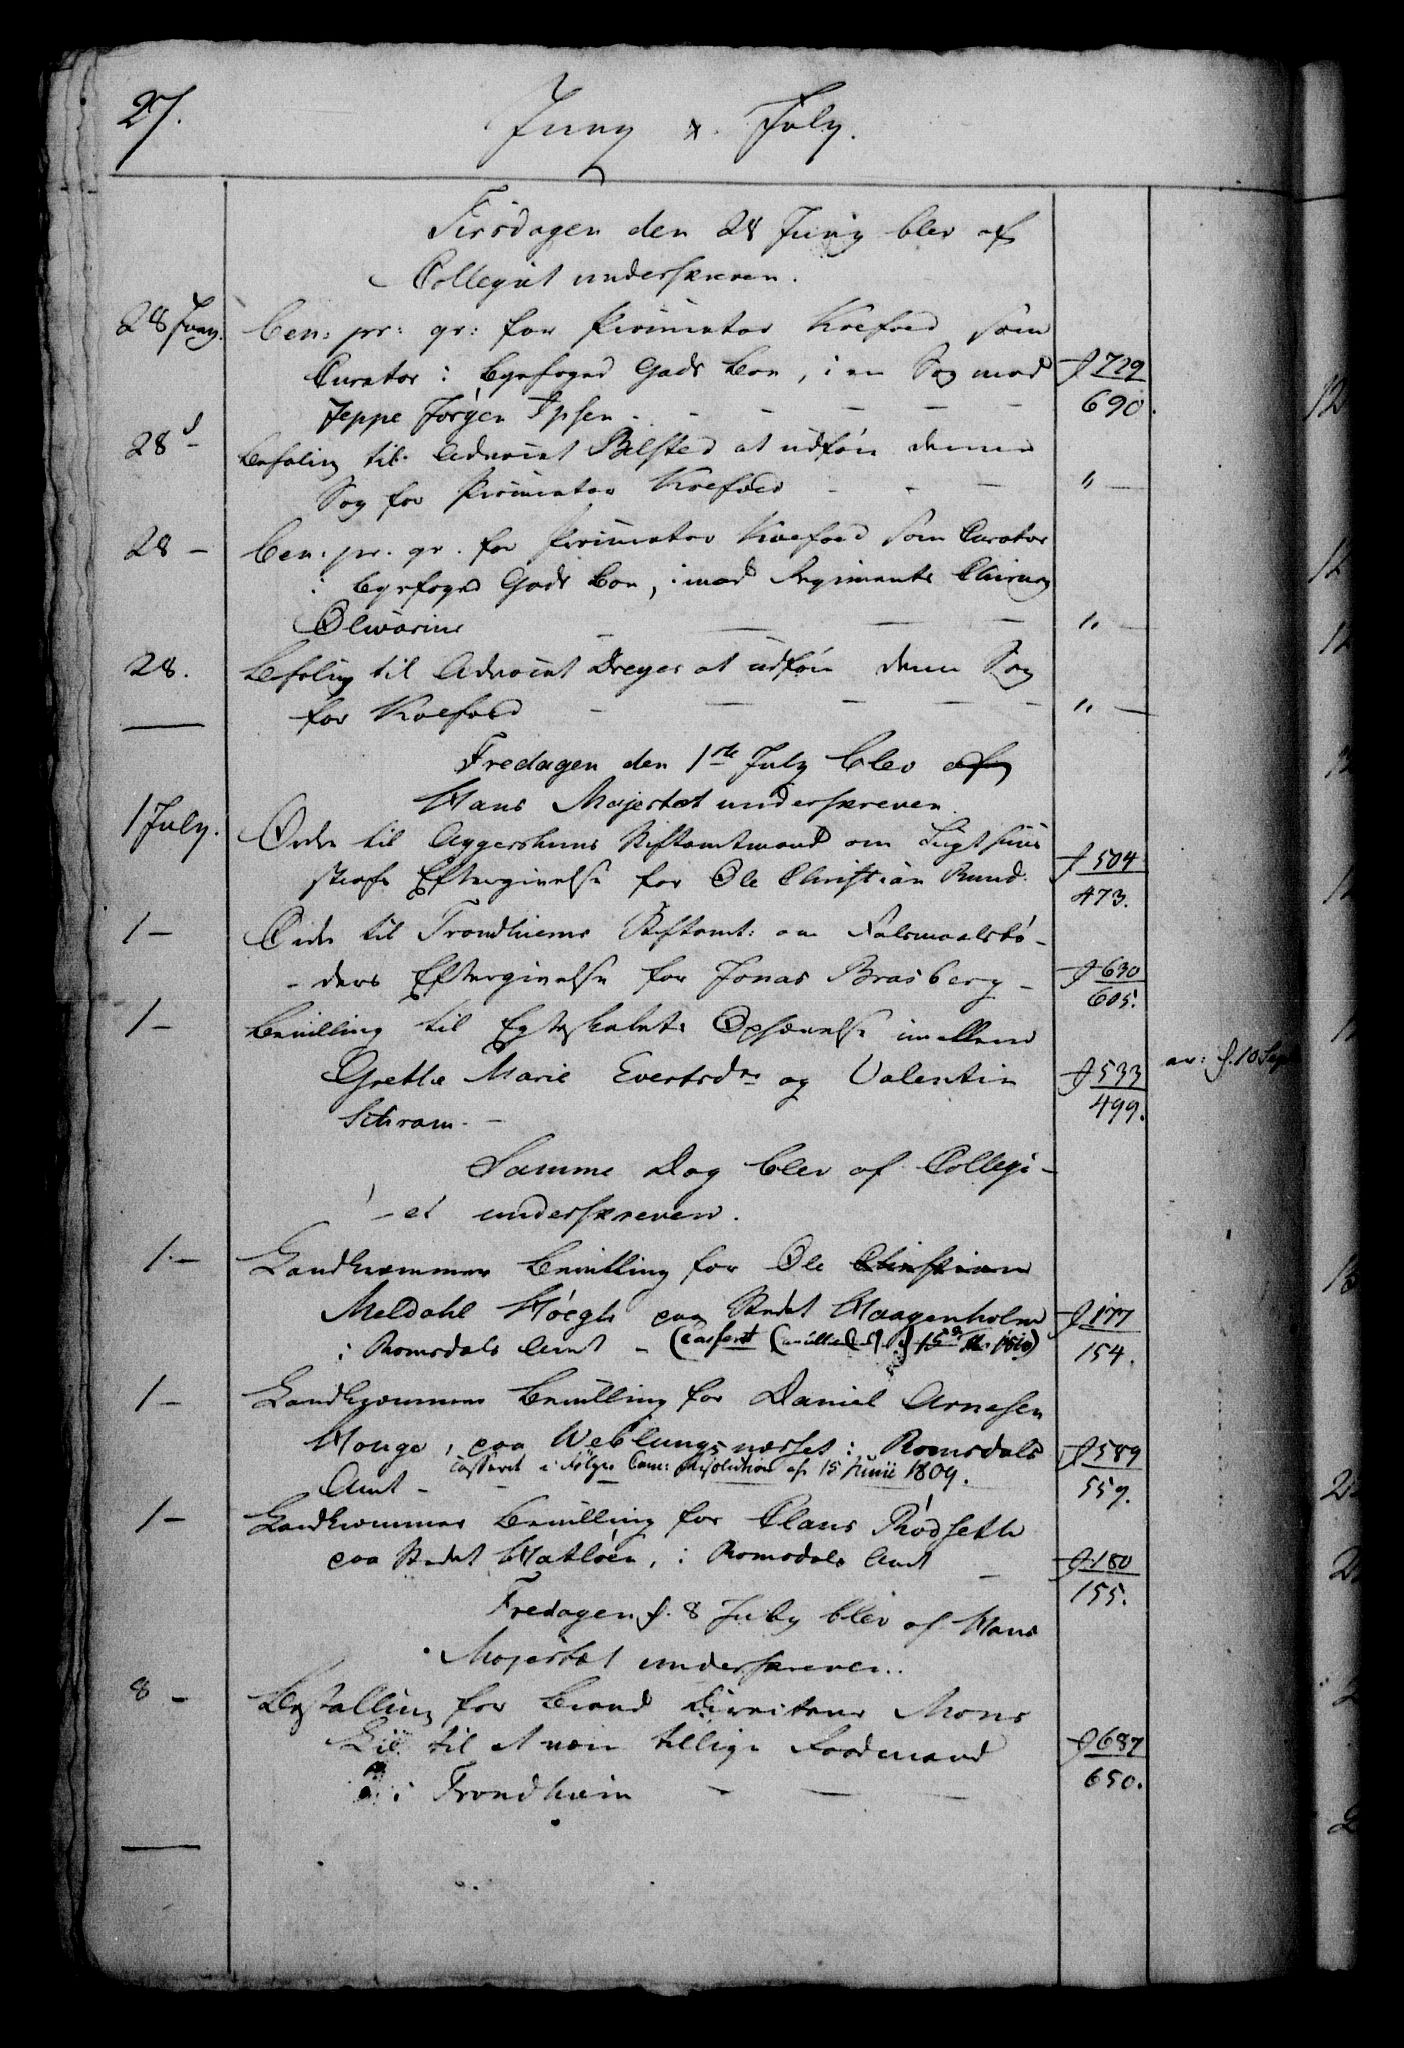 27.
Juny & July.
Tirsdagen den 28 Juny blev af
Collegiet underskreven.
28 Juny. Ben: pr: gr: for Procurator Koefoed som
Curator i Byefoged Gads Boe, i en Sag mod
Jeppe Jörgen Ipsen - - - -
J 729
690.
28 d - Befaling til Advocat Bilsted at udföre denne
Sag for Procurator Koefoed - - - " -
28 - Ben: pr. gr. for Procurator Koefoed som Curator
i Byefoged Gads Boe, imod Regiments Chirurg
Olivarius - - - - " -
28. Befaling til Advocat Dreyer at udföre denne Sag
for Koefoed - - - - " -
Fredagen den 1ste July blev af
Hans Majestæt underskreven.
1 July. Ordre til Aggershuus Stiftamtmand om Tugthuus
straffs Eftergivelse for Ole Christian Rund.
J 504
473.
1 - Ordre til Trondhiems Stiftamt: om Leiermaalsbö-
- ders Eftergivelse for Jonas Brasberg -
J 630
605.
1 - Bevilling til Egteskabets Ophævelse imellem
Grethe Marie Evertsdr og Valentin
Schram. -
J 533
499.
an: d. 10 Sept
Samme Dag blev af Collegi-
- et underskreven.
1. - Landkræmmer Bevilling for Ole Christian
Meldahl Höegh paa Stedet Haagenholm
i Romsdals Amt - (casseret 15 1810)
J 177
154.
1 - Landkræmmer Bevilling for Daniel Arnesen
Houge, paa Weblungsnæsset i Romsdals
Amt - casseret i Fölge Canc: Resolution af 15 Junii 1809.
J 589
559.
1 - Landkræmmer Bevilling for Claus Rödseth
paa Stedet Hatlöen, i Romsdals Amt -
J 180
155.
Fredagen d. 8 July blev af Hans
Majestæt underskreven..
8 - Bestalling for Brand Directeur Mons
Lie til at være tillige Raadmand
i Trondhiem - - -
J 687
650.